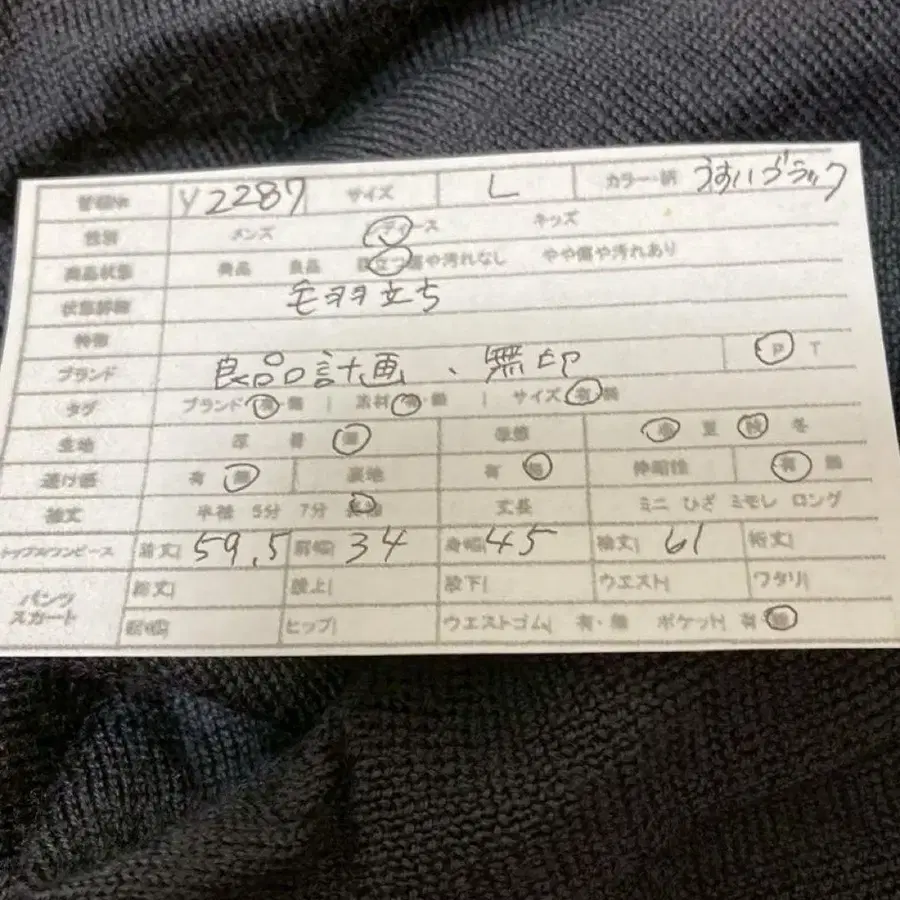 管理No Y2287 サイズ L カラー・柄 うすいブラック
性別 メンズ レディース キッズ
商品状態 美品 良品 目立つ傷や汚れなし やや傷や汚れあり
状態詳細 毛羽立ち
特徴
ブランド 良品計画、無印 P T
タグ ブランド 有・無 | 素材 有・無 | サイズ 有・無
生地 厚 普 薄 季節 春 夏 秋 冬
透け感 有 無 裏地 有 無 伸縮性 有 無
袖丈 半袖 5分 7分 長袖 丈長 ミニ ひざ ミモレ ロング
トップス/ワンピース 着丈| 59.5 肩幅| 34 身幅| 45 袖丈| 61 裄丈|
パンツ スカート 総丈| 股上| 股下| ウエスト| ワタリ|
裾幅| ヒップ| ウエストゴム| 有・無 ポケット| 有 無